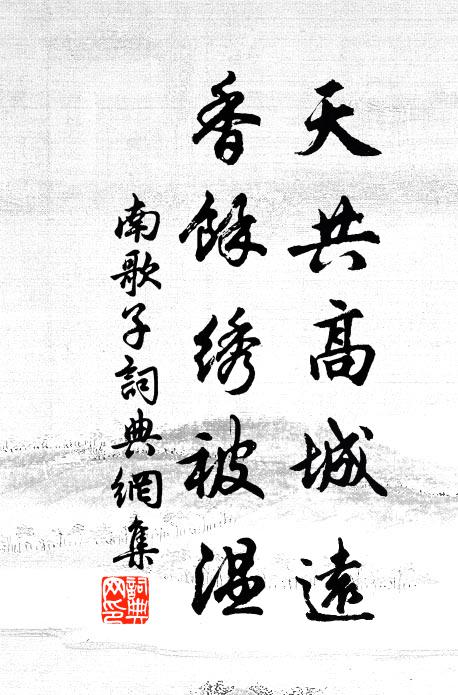 天共高城遠
香餘绣被溫
南歌子詞典網集
詞典網印